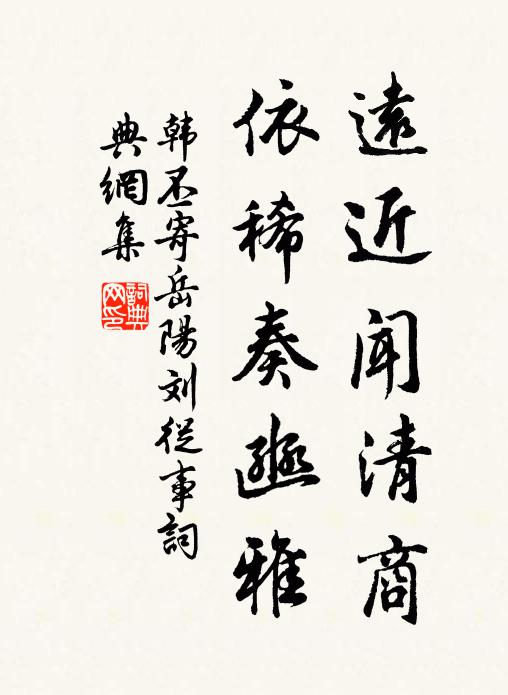 遠近聞清商
依稀奏豳雅
韩丕寄岳陽刘從事詞
典網集
詞典网印